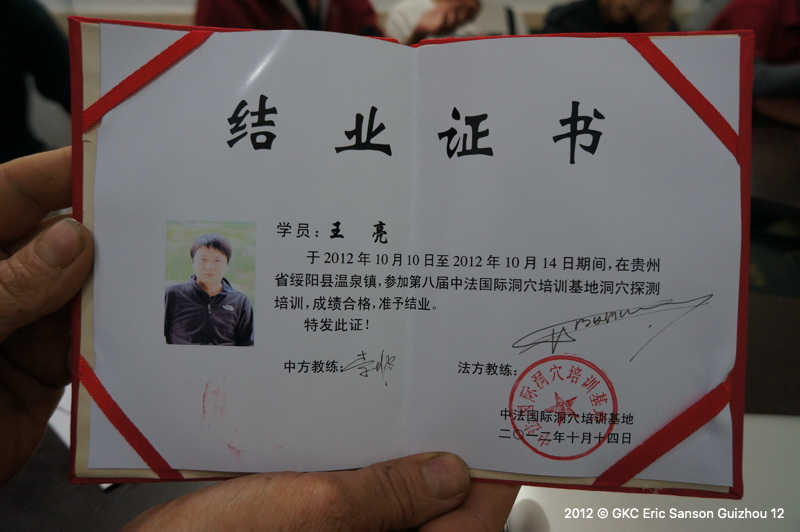 结业证书
学员：王 亮
于 2012 年 10 月 10 日至 2012 年 10 月 14 日期间，在贵州
省绥阳县温泉镇，参加第八届中法国际洞穴培训基地洞穴探测
培训，成绩合格，准予结业。
特发此证！
中方教练：
法方教练：
中法国际洞穴培训基地
中法国际洞穴培训基地
二〇一二年十月十四日
2012 © GKC Eric Sanson Guizhou 12